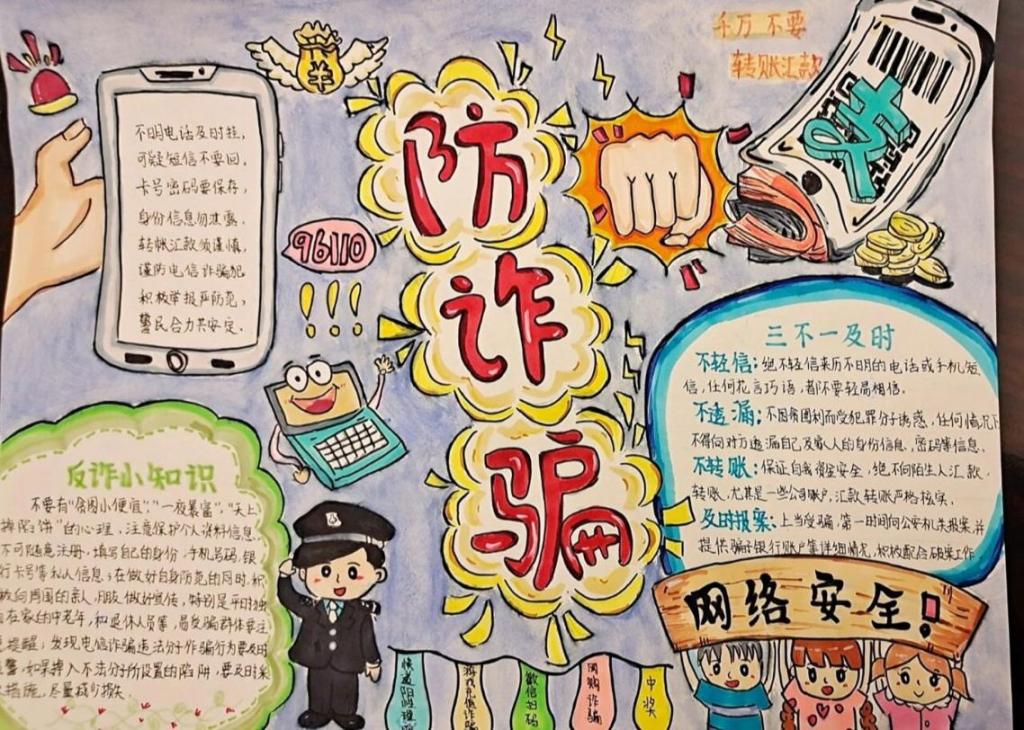 千万不要
转账汇款
不明电话及时挂,
可疑短信不要回,
卡号密码要保存,
身份信息勿泄露,
转帐汇款须谨慎,
谨防电信诈骗犯
积极举报严防范,
警民合力共安定.
96110
!!!
防
诈
骗
三不一及时
不轻信:绝不轻信来历不明的电话或手机短
信,任何花言巧语,都不要轻易相信.
不透漏:不因贪图利而受犯罪分子诱惑,任何情况下
不得向对方透漏自己及家人的身份信息,密码等信息,
不转账:保证自我资金安全,绝不向陌生人汇款,
转账,尤其是一些公司账户,汇款转账严格核实,
及时报案:上当受骗,第一时间向公安机关报案,并
提供骗子银行账户等详细情况,积极配合破案工作
反诈小知识
不要有“贪图小便宜”,“一夜暴富”,“天上
掉陷饼”的心理,注意保护个人资料信息,
不可随意注册,填写自己的身份,手机号码,银
行卡号等私人信息;在做好自身防范的同时,积
极向周围的亲人,朋友做好宣传,特别是平时独
自在家的中老年,和退休人员等,易受骗群体要注
提醒,发现电信诈骗违法分子作骗行为要及时
警,如果掉入不法分子所设置的陷阱,要及时采
措施,尽量减少损失
网络安全!
快递
游戏充值诈骗
微信扫码
网购诈骗
中奖